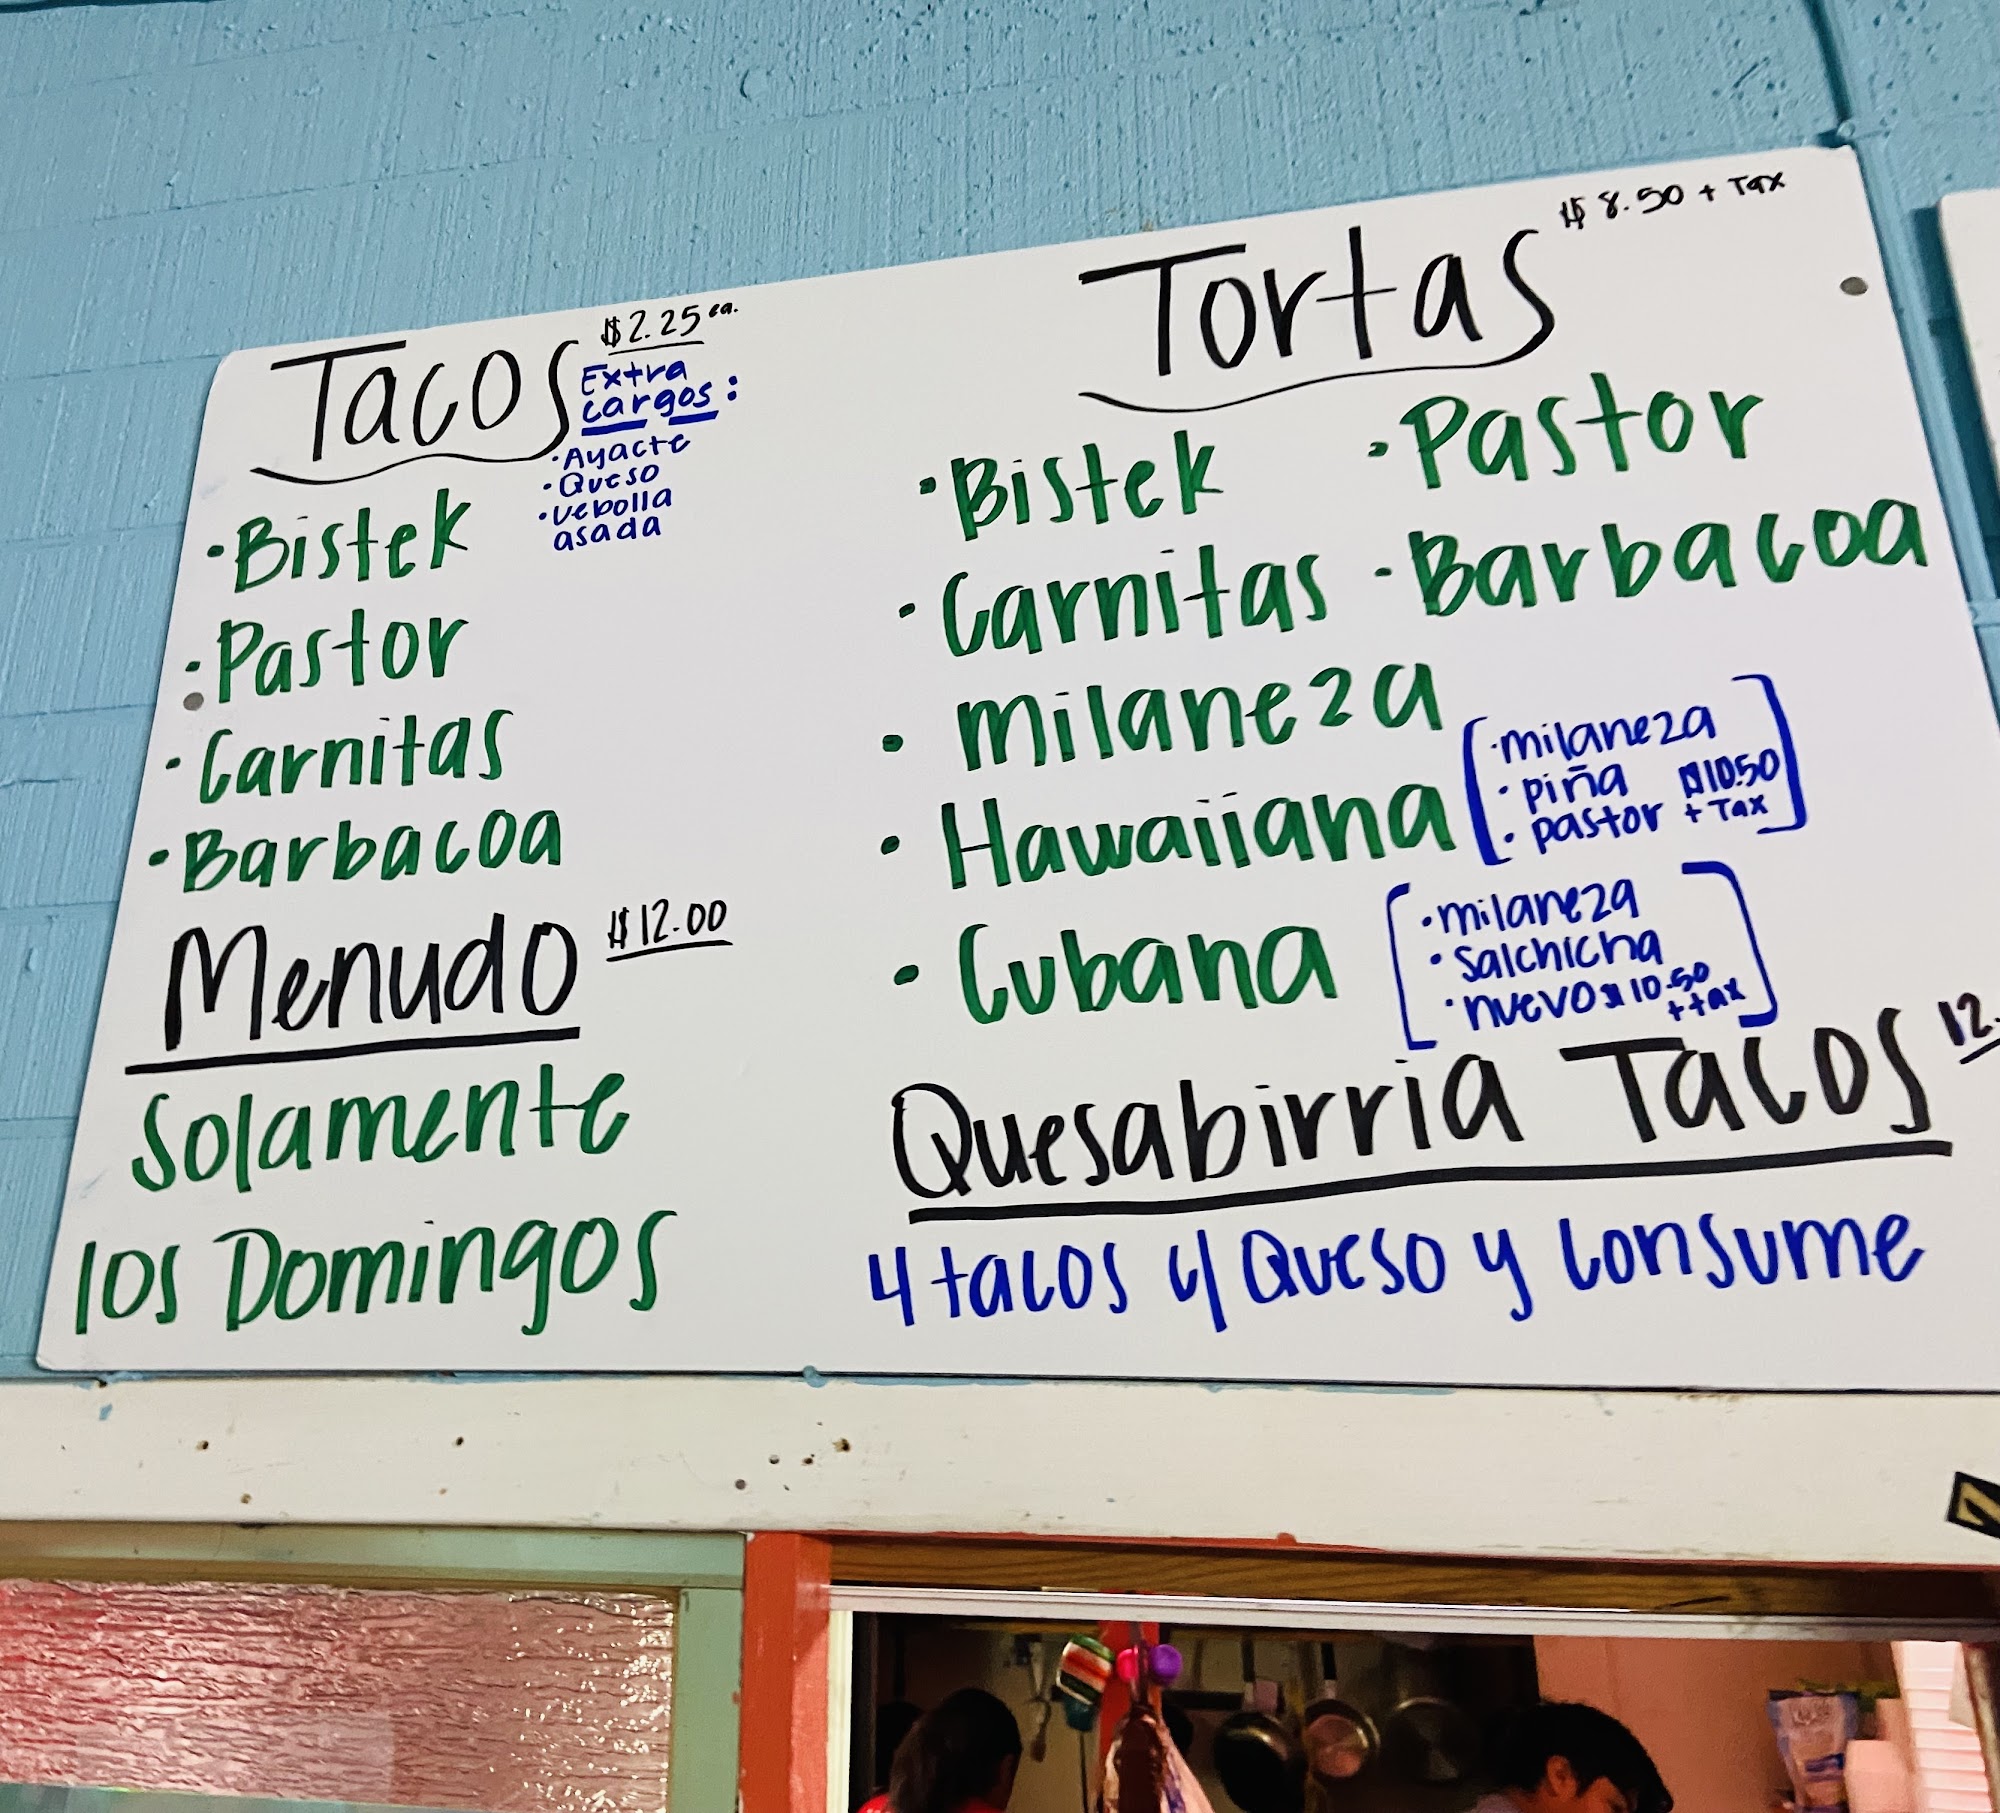 Tacos $2.25 ea.
Extra
cargos:
·Ayacte
·Queso
·cebolla
asada
·Bistek
·Pastor
·Carnitas
·Barbacoa
Menudo $12.00
Solamente
los Domingos
Tortas $8.50 + Tax
·Bistek ·Pastor
·Carnitas ·Barbacoa
·milaneza
·Hawaiiana
·milaneza
·piña $10.50
·pastor + Tax
·Cubana
·milaneza
·salchicha
·nuevo $10.50
+ tax
Quesabirria Tacos 12.
4 tacos c/ Queso y consume